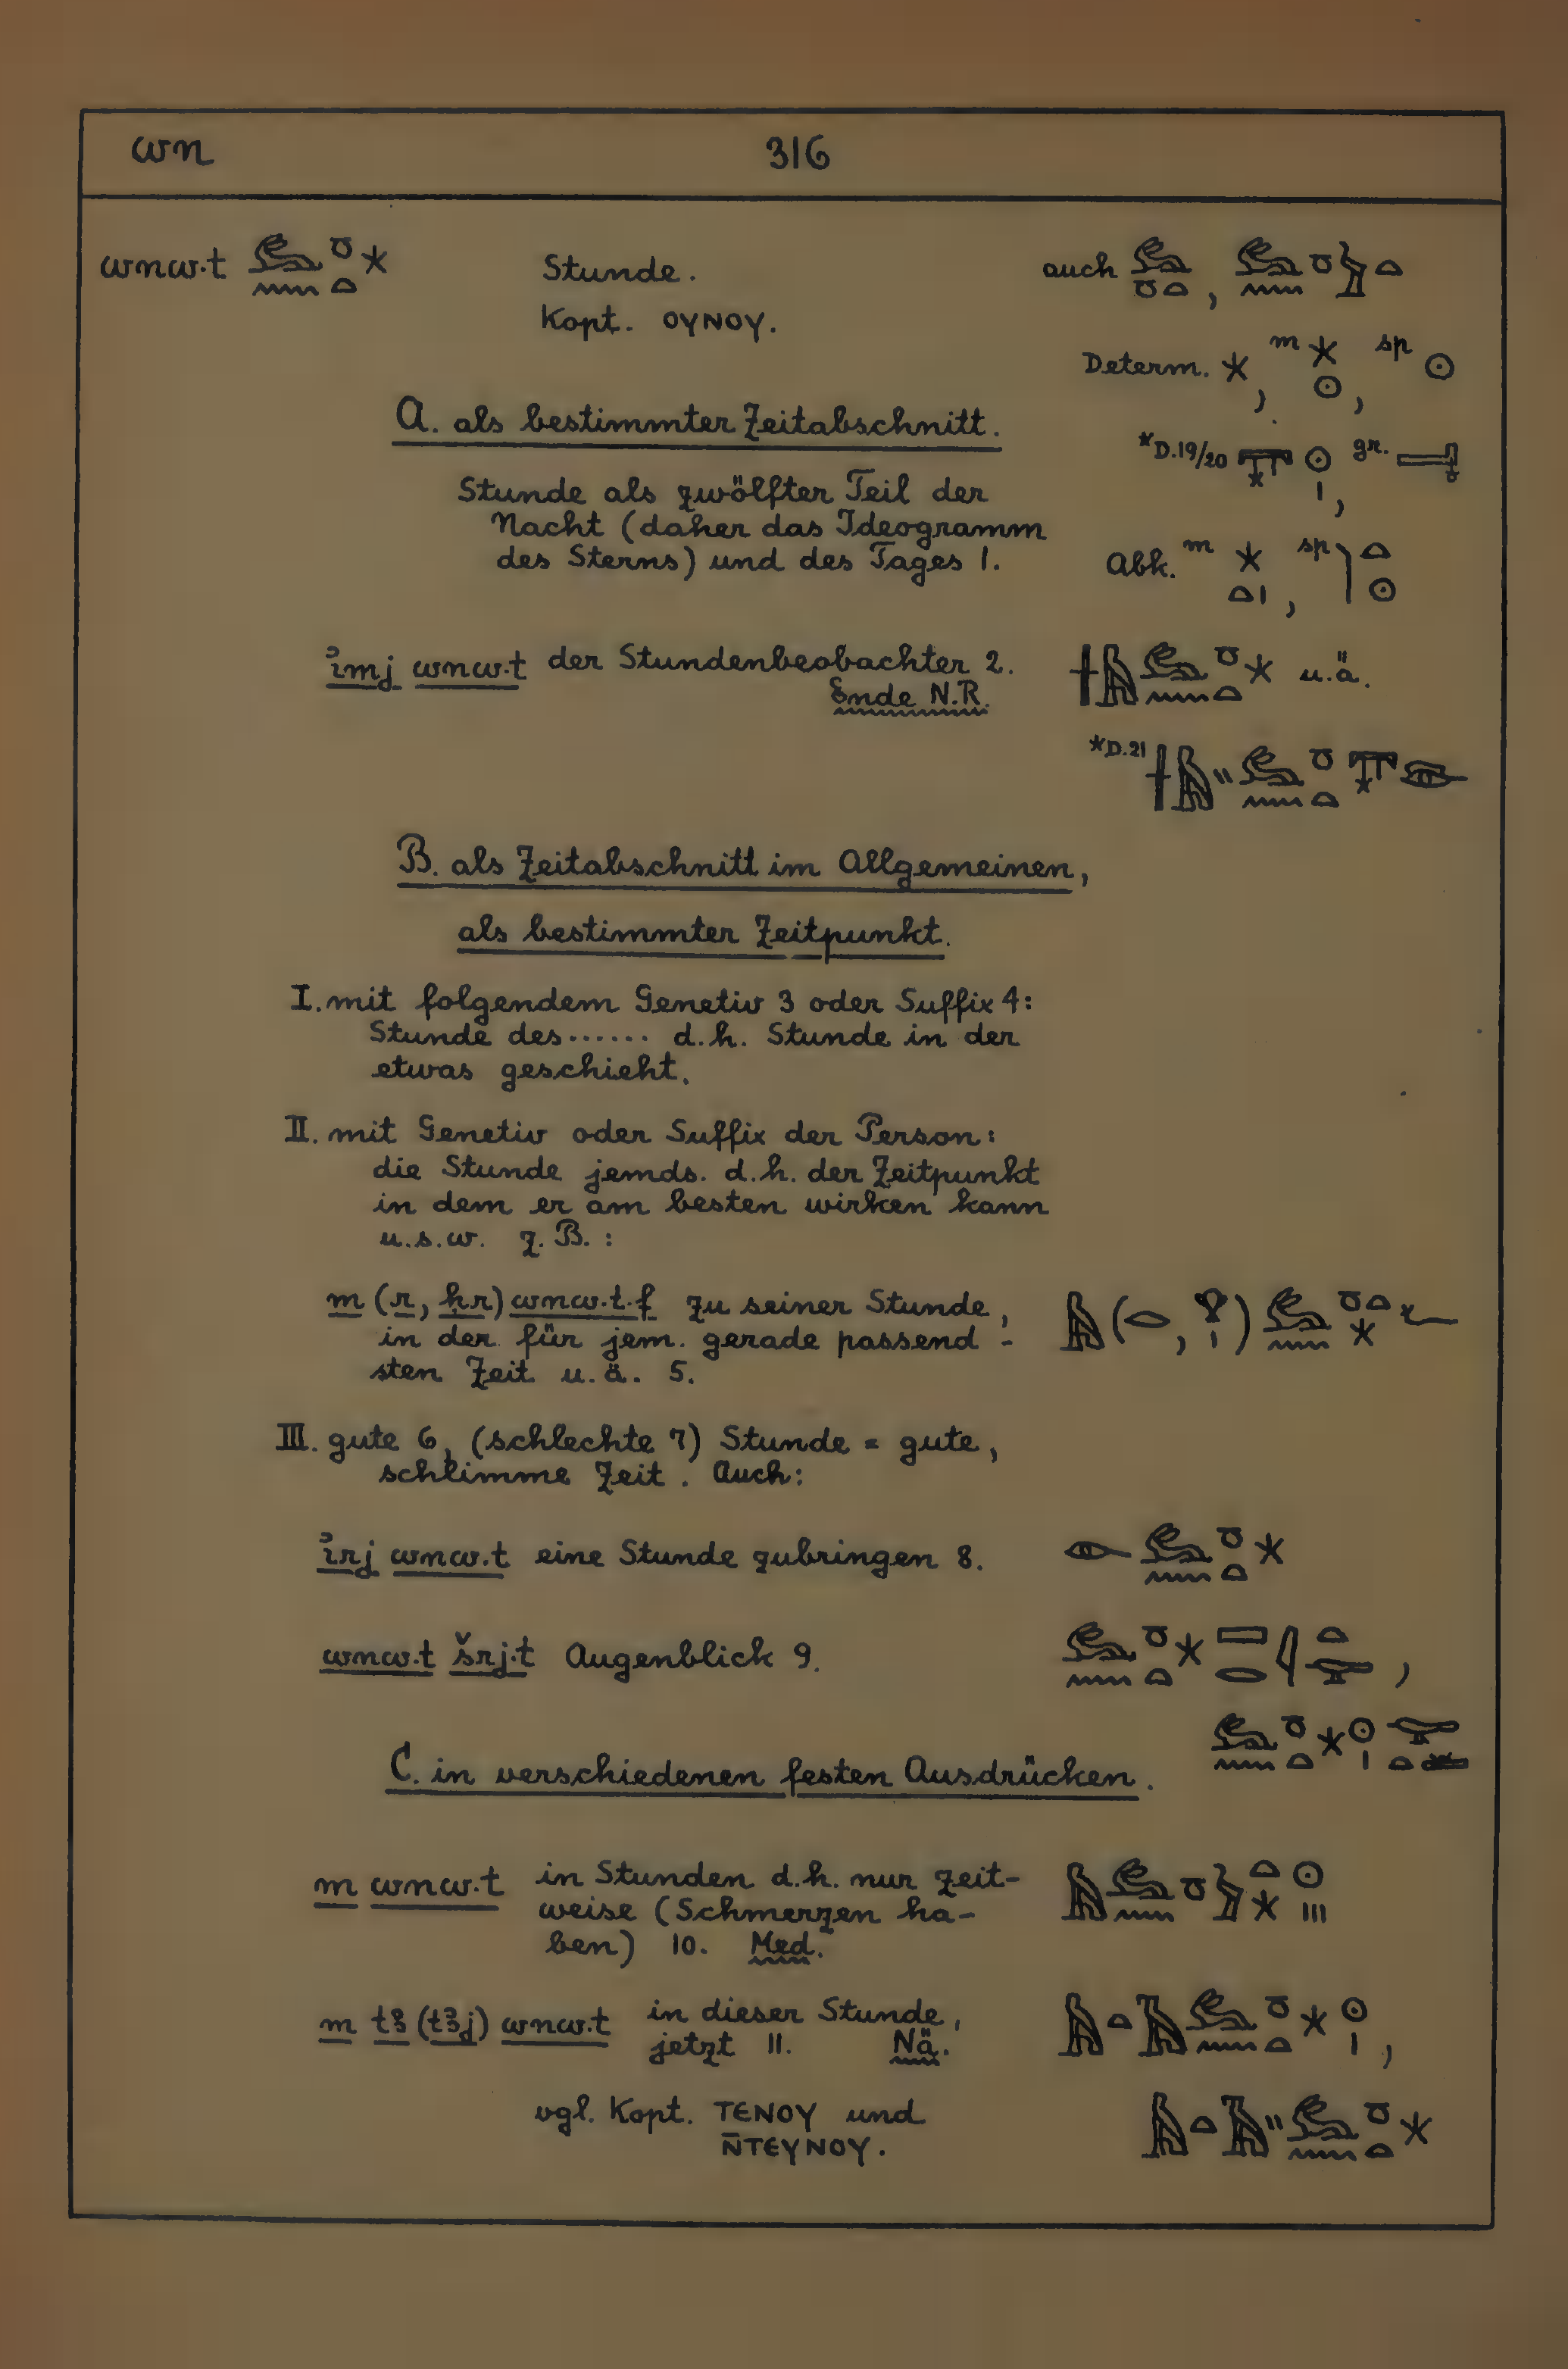 wn 316
wnw.t 𓃹𓈖𓏌𓏏𓇼 Stunde. auch 𓃹𓏌𓏏, 𓃹𓈖𓏌𓅱𓏏
Kopt. ⲞⲨⲚⲞⲨ.
Determ. 𓇼, m 𓇼𓇳, sp 𓇳
A. als bestimmter Zeitabschnitt.
*D.19/20 𓇰𓇳𓏤, gr.
Stunde als zwölfter Teil der
Nacht (daher das Ideogramm
des Sterns) und des Tages 1.
Abk. m 𓇼𓏏𓏤, sp 𓏏𓇳
ỉmj wnw.t der Stundenbeobachter 2. 𓏶𓅓𓃹𓈖𓏌𓏏𓇼 u.ä.
Ende N.R.
*D.21 𓏶𓅓𓏭𓃹𓈖𓏌𓏏𓇰
B. als Zeitabschnitt im Allgemeinen,
als bestimmter Zeitpunkt.
I. mit folgendem Genetiv 3 oder Suffix 4:
Stunde des...... d.h. Stunde in der
etwas geschieht.
II. mit Genetiv oder Suffix der Person:
die Stunde jemds. d.h. der Zeitpunkt
in dem er am besten wirken kann
u.s.w. z.B.:
m (r, ḥr) wnw.t.f zu seiner Stunde, 𓅓(𓂋, 𓁷𓏤)𓃹𓈖𓏌𓏏𓇼𓆑
in der für jem. gerade passend-
sten Zeit u.ä. 5.
III. gute 6, (schlechte 7) Stunde = gute,
schlimme Zeit. Auch:
ỉrj wnw.t eine Stunde zubringen 8. 𓁹𓃹𓈖𓏌𓏏𓇼
wnw.t šrj.t Augenblick 9. 𓃹𓈖𓏌𓏏𓇼𓈙𓂋𓇋𓏏𓅪,
𓃹𓈖𓏌𓏏𓇼𓇳𓏤𓅪𓏏
C. in verschiedenen festen Ausdrücken.
m wnw.t in Stunden d.h. nur zeit- 𓅓𓃹𓈖𓏌𓅱𓏏𓇼𓇳𓏥
weise (Schmerzen ha-
ben) 10. Med.
m tꜣ (tꜣj) wnw.t in dieser Stunde, 𓅓𓏏𓅮𓃹𓈖𓏌𓏏𓇼𓇳𓏤,
jetzt 11. Nä.
vgl. Kopt. ⲦⲈⲚⲞⲨ und 𓅓𓏏𓅮𓏭𓃹𓈖𓏌𓏏𓇼
Ⲛ̄ⲦⲈⲨⲚⲞⲨ.